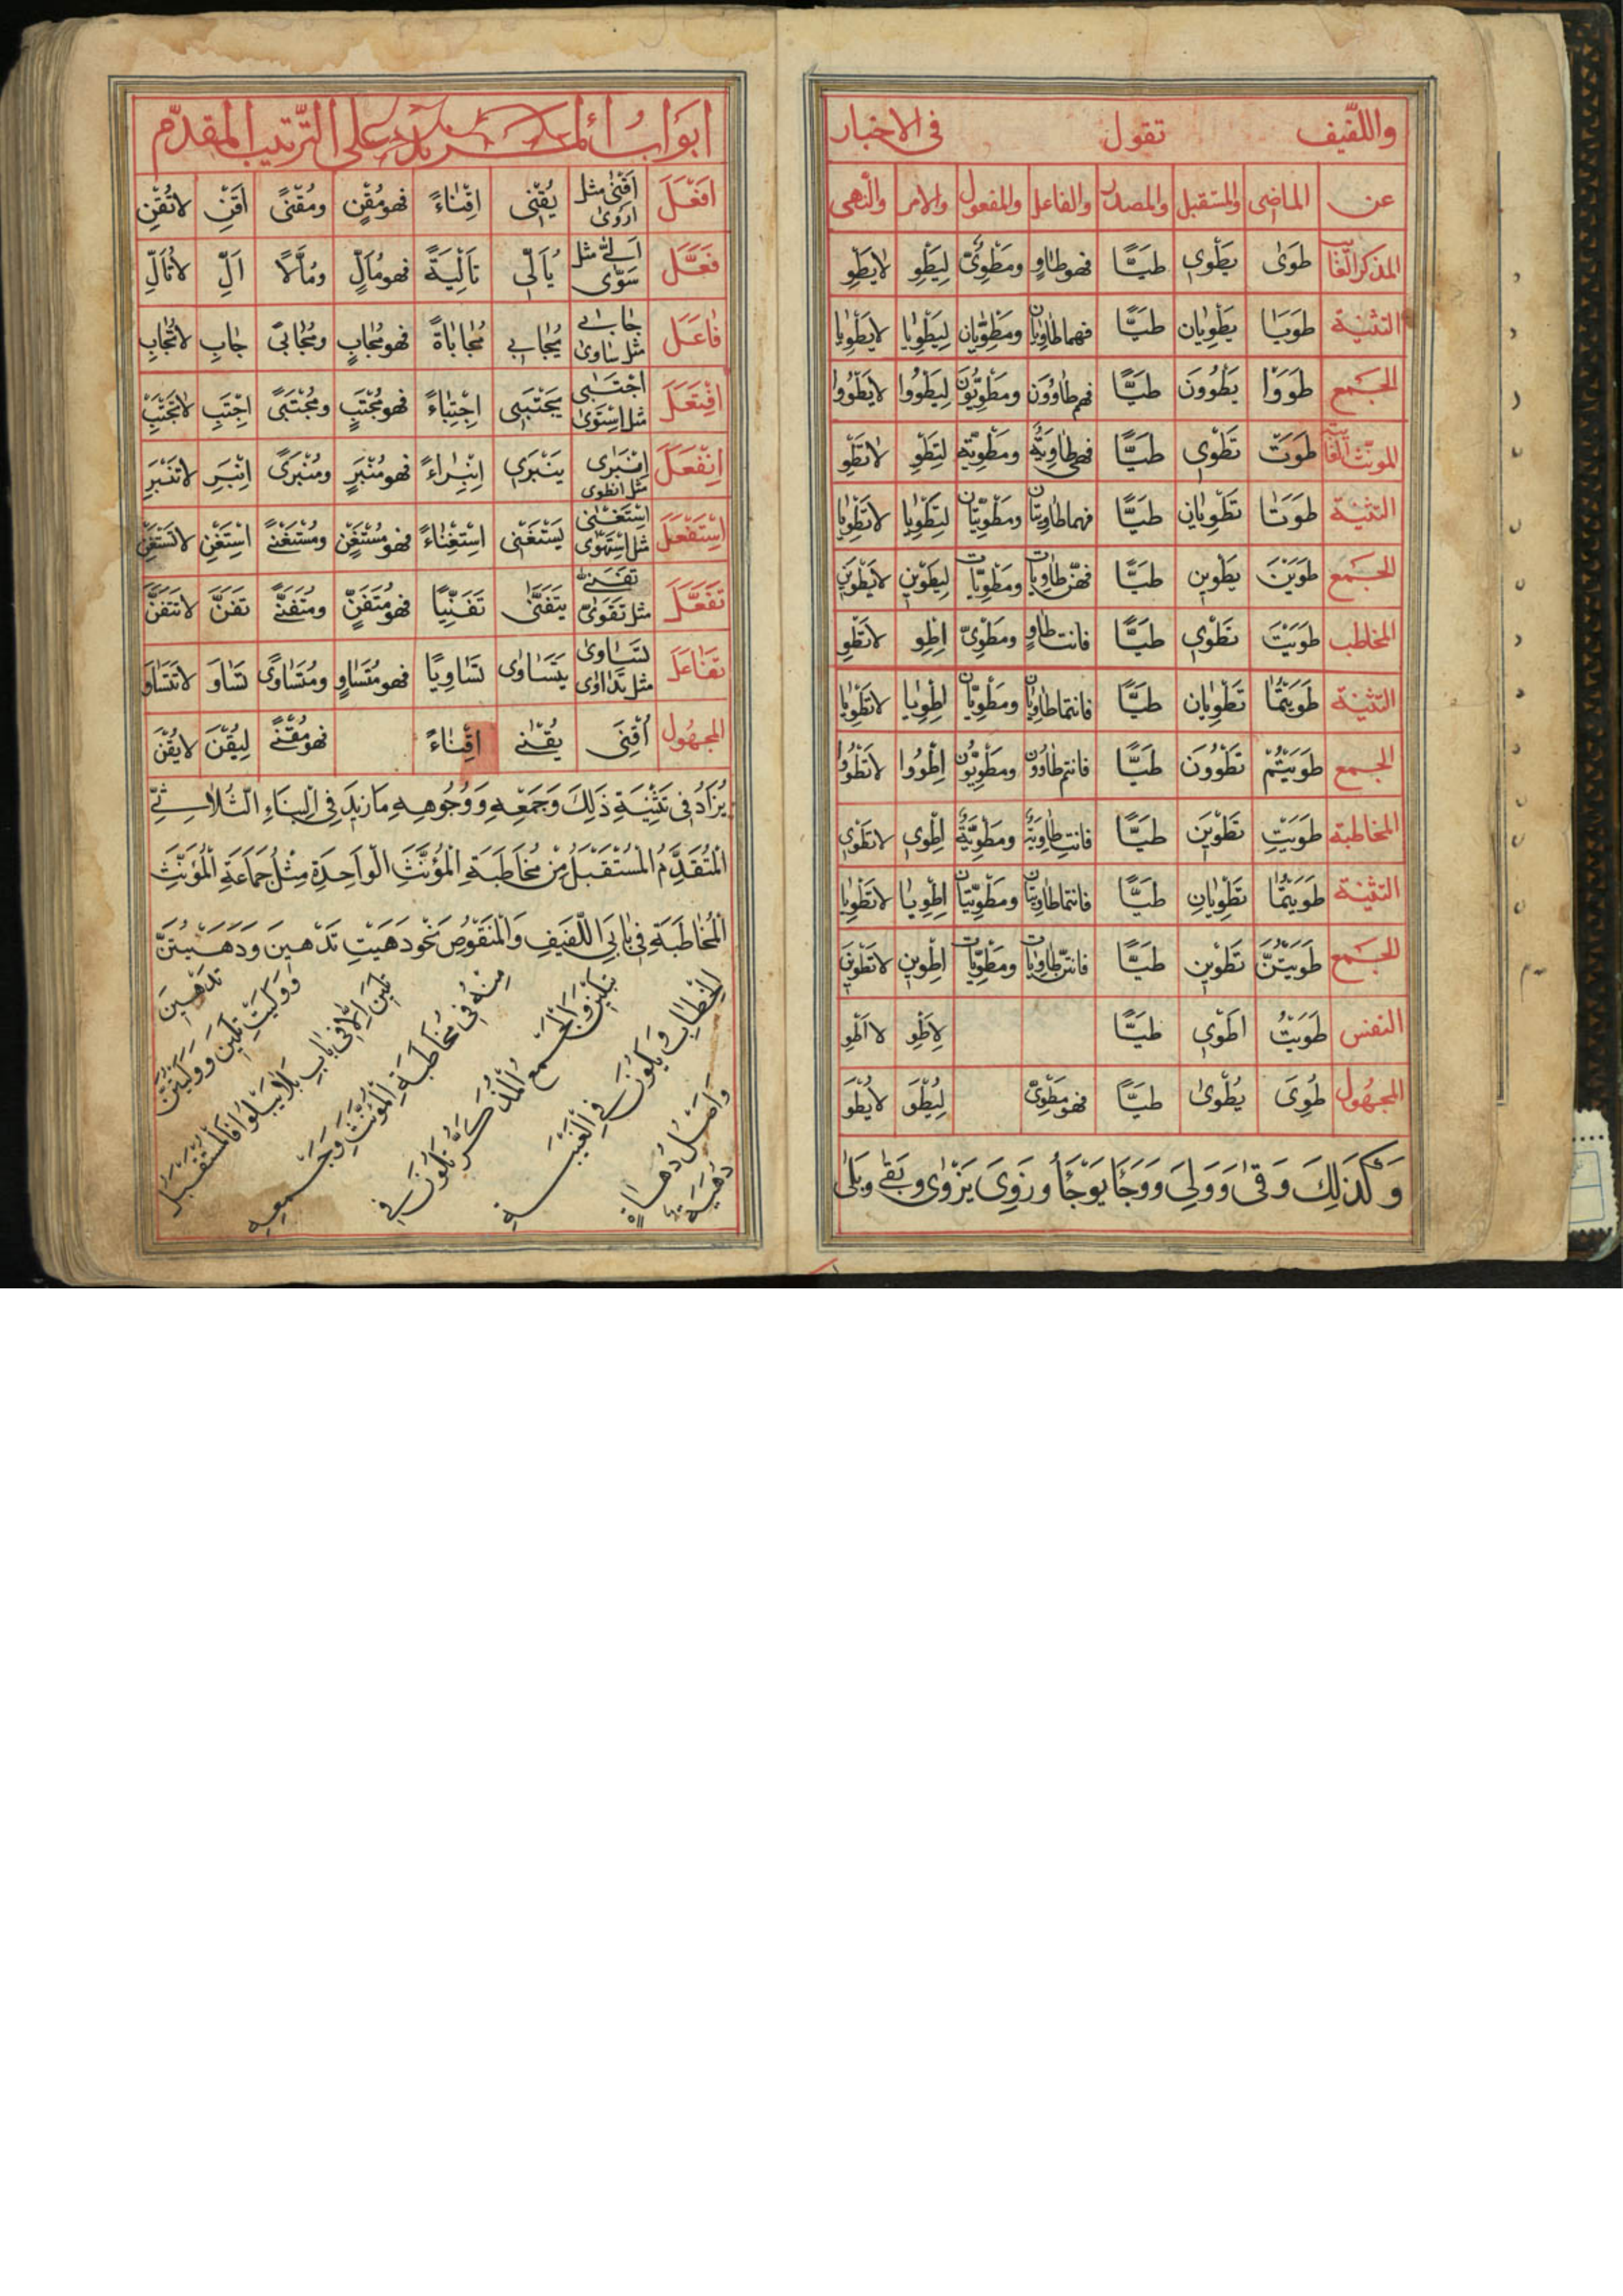 واللّفيف تقول فى الاخبار
عن الماضى والمستقبل والمصدر والفاعل والمفعول والامر والنهى
المذكر الغايب طَوىٰ يَطْوِى طيًّا فهو طاوٍ ومَطْوِىّ لِيَطْوِ لا يَطْوِ
التثنية طَوَيَا يَطْوِيان طيًّا فهما طاوِيان ومَطْوِيّان لِيَطْوِيا لا يَطْوِيا
الجمع طَوَوْا يَطْوُونَ طيًّا فهم طاوُون ومَطْوِيّوُن لِيَطْوُوا لا يَطْوُوا
المونّث الغايبة طَوَتْ تَطْوِى طيًّا فهى طاوِيَةٌ ومَطْوِيّة لِتَطْوِ لا تَطْوِ
التثنية طَوَتَا تَطْوِيانِ طيًّا فهما طاوِيتان ومَطْوِيّتان لِتَطْوِيا لا تَطْوِيا
الجمع طَوَيْنَ يَطْوِين طيًّا فهنّ طاوِيات ومَطْوِيّات لِيَطْوِين لا يَطْوِين
المخاطب طَوَيْتَ تَطْوِى طيًّا فانت طاوٍ ومَطْوِىّ اِطْوِ لا تَطْوِ
التثنية طَوَيْتُمَا تَطْوِيان طيًّا فانتما طاوِيان ومَطْوِيّان اِطْوِيا لا تَطْوِيا
الجمع طَوَيْتُمْ تَطْوُونَ طيًّا فانتم طاوُون ومَطْوِيّوُن اِطْوُوا لا تَطْوُوا
المخاطبة طَوَيْتِ تَطْوِيَن طيًّا فانتِ طاوِيَةٌ ومَطْوِيَّةٌ اِطْوِى لا تَطْوِى
التثنية طَوَيْتُمَا تَطْوِيانِ طيًّا فانتما طاوِيتان ومَطْوِيّتان اِطْوِيا لا تَطْوِيا
الجمع طَوَيْتُنَّ تَطْوِين طيًّا فانتنّ طاوِيات ومَطْوِيّات اِطْوِين لا تَطْوِين
النفس طَوَيْتُ اَطْوِى طيًّا لِاَطْوِ لا اَطْوِ
المجهُول طُوِىَ يُطْوىٰ طيًّا فهو مَطْوِىّ لِيُطْوَ لا يُطْوَ
وَكَذٰلِكَ وَقىٰ وَوَلِىَ وَوَجَأ يَوْجَأُ وزَوِىَ يَزْوىٰ وبَقىٰ وبَلىٰ
ابَوابُ على التّرتيب المقدّم
اَفْعَلَ اَقْنىٰ مثل اَرْوىٰ يُقْنِى اِقْنٰاءً فهو مُقْنٍ ومُقْنًى اَقْنِ لا تُقْنِ
فَعَّلَ اَلّىٰ مثل سَوّى يُاَلّى تَأْلِيَةً فهو مُاَلٍّ ومُاَلًّا اَلِّ لا تُاَلِّ
فٰاعَلَ جٰابىٰ مثل سٰاوىٰ يُجٰابِى مُجٰابٰاةً فهو مُجٰابٍ ومُجٰابًى جٰابِ لا تُجٰابِ
اِفْتَعَلَ اجْتَبىٰ مثل اسْتَوىٰ يَجْتَبِى اِجْتِبٰاءً فهو مُجْتَبٍ ومُجْتَبًى اِجْتَبِ لا تَجْتَبِ
اِنْفَعَلَ انْبَرى مثل انطوى يَنْبَرِى اِنْبِرٰاءً فهو مُنْبَرٍ ومُنْبَرًى اِنْبَرِ لا تَنْبَرِ
اِسْتَفْعَلَ اسْتَغْنٰى مثل اسْتَهْوٰى يَسْتَغْنِى اِسْتِغْنٰاءً فهو مُسْتَغْنٍ ومُسْتَغْنًى اسْتَغْنِ لا تَسْتَغْنِ
تَفَعَّلَ تَفَنّىٰ مثل تَقَوّىٰ يَتَفَنّىٰ تَفَنِّيًا فهو مُتَفَنٍّ ومُتَفَنًّى تَفَنَّ لا تَتَفَنَّ
تَفٰاعَلَ تَسٰاوىٰ مثل تَدٰاوٰى يَتَسٰاوىٰ تَسٰاوِيًا فهو مُتَسٰاوٍ ومُتَسٰاوًى تَسٰاوَ لا تَتَسٰاوَ
المجهُول اُقْنِىَ يُقْنىٰ اِقْنٰاءً فهو مُقْنًى لِيُقْنَ لا يُقْنَ
يُزَادُ فى تَثْنِيَةِ ذٰلِكَ وَجَمْعِهِ وَوُجُوهِهِ مَا زيدَ فِى الْبِنَاءِ الثُّلاثىِّ
الْمُتَقَدِّمُ الْمُسْتَقْبَلُ مِنْ مُخَاطَبَةِ الْمُؤَنَّثِ الْوَاحِدَةِ مِثْلُ جَمَاعَةِ الْمُؤَنَّثِ
الْمُخَاطَبَةِ فى بٰابَىِ اللَّفيفِ وَالْمَنْقُوصِ نَحْو دَهَيْتِ تَدْهينَ وَدَهَيْتُنَّ
تَدْهينَ
وَوَلَيْتِ تَلينَ وَوَلَيْتُنَّ
تَلينَ اِلّا فى بابِ بَلا يَبْلُوا فَالْمُسْتَقْبَلُ
مِنْهُ فى مُخَاطَبَةِ الْمُؤَنَّثِ وَجَمْعِهِ
الْجَمْعِ الْمُذَكَّر يَكُونُ فى
الْخِطَابِ وَيَكُونُ فى الْغَيْبَةِ
وَاَصْلُ دُهَاةٍ
دُهَيَةٌ